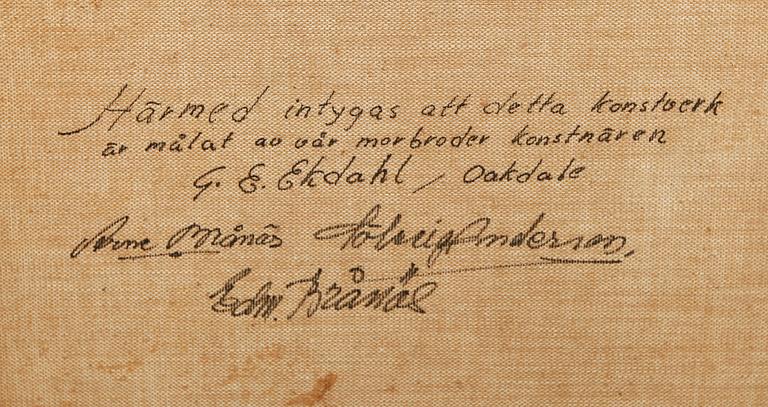 Härmed intygas att detta konstverk
är målat av vår morbroder konstnären
G. E. Ekdahl / Oakdale
Arne Solveig Anderson,
Edm.